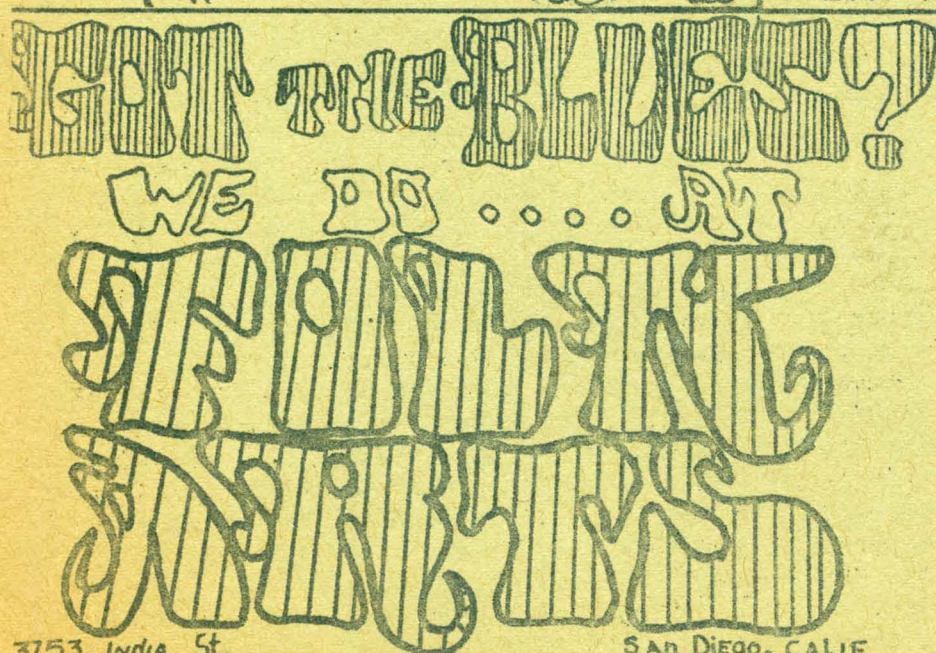 GOT THE BLUES?
WE DO .... AT
FOLK
ARTS
3753 INDIA St. SAN DIEGO, CALIF